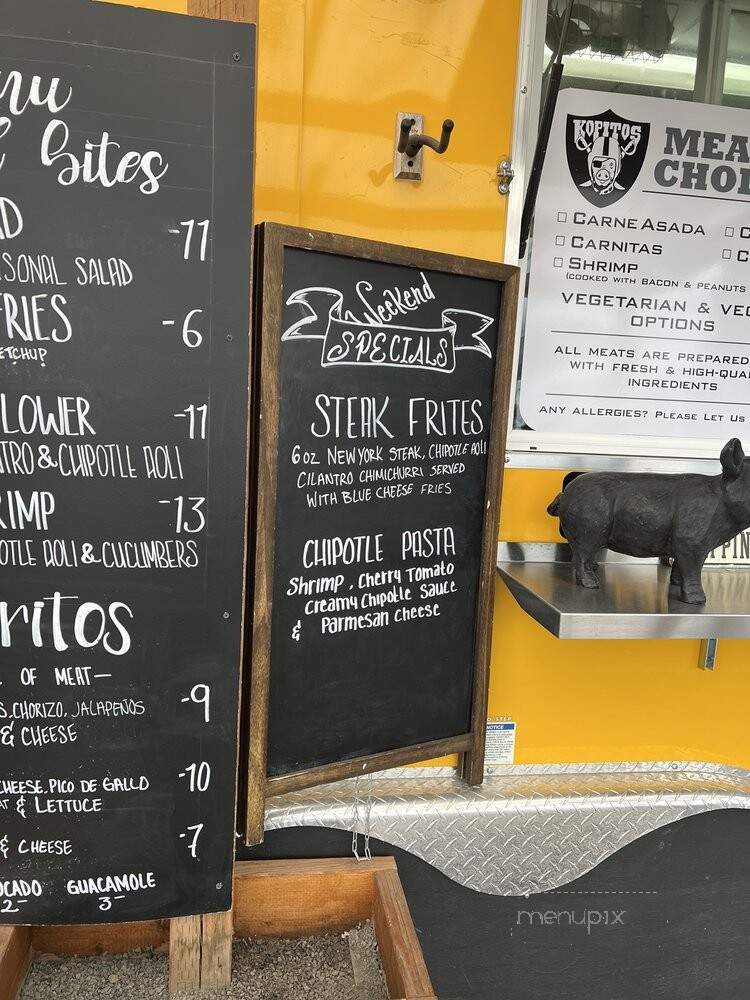 nu
Bites
-11
SONAL SALAD
FRIES -6
ETCHUP
LOWER -11
TRO & CHIPOTLE AOLI
RIMP -13
OTLE AOLI & CUCUMBERS
ritos
OF MEAT-
S, CHORIZO, JALAPEÑOS -9
& CHEESE
CHEESE, PICO DE GALLO -10
& LETTUCE
& CHEESE -7
OCADO GUACAMOLE
2- 3-
Weekend
SPECIALS
STEAK FRITES
6 OZ NEW YORK STEAK, CHIPOTLE AOLI
CILANTRO CHIMICHURRI SERVED
WITH BLUE CHEESE FRIES
CHIPOTLE PASTA
Shrimp, Cherry Tomato
Creamy Chipotle Sauce
& Parmesan Cheese
KOPITOS
MEA
CHO
CARNE ASADA
CARNITAS
SHRIMP
(COOKED WITH BACON & PEANUTS
VEGETARIAN & VEG
OPTIONS
ALL MEATS ARE PREPARED
WITH FRESH & HIGH-QUA
INGREDIENTS
ANY ALLERGIES? PLEASE LET US
PPIN
NOTICE
menupix